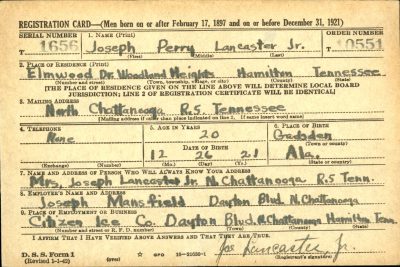 REGISTRATION CARD—(Men born on or after February 17, 1897 and on or before December 31, 1921)
SERIAL NUMBER 1. NAME (Print) ORDER NUMBER
T 1656 Joseph Perry Lancaster Jr. T 10551
(First) (Middle) (Last)
2. PLACE OF RESIDENCE (Print)
Elmwood Dr. Woodland Heights Hamilton Tennessee
(Number and street) (Town, township, village, or city) (County) (State)
[THE PLACE OF RESIDENCE GIVEN ON THE LINE ABOVE WILL DETERMINE LOCAL BOARD
JURISDICTION; LINE 2 OF REGISTRATION CERTIFICATE WILL BE IDENTICAL]
3. MAILING ADDRESS
North Chattanooga R.5 Tennessee
[Mailing address if other than place indicated on line 2. If same insert word same]
4. TELEPHONE 5. AGE IN YEARS 6. PLACE OF BIRTH
None 20 Gadsden
DATE OF BIRTH (Town or county)
12 26 21 Ala.
(Exchange) (Number) (Mo.) (Day) (Yr.) (State or country)
7. NAME AND ADDRESS OF PERSON WHO WILL ALWAYS KNOW YOUR ADDRESS
Mrs. Joseph Lancaster Jr. N. Chattanooga R.5 Tenn.
8. EMPLOYER'S NAME AND ADDRESS
Joseph Mansfield Dayton Blvd. N. Chattanooga
9. PLACE OF EMPLOYMENT OR BUSINESS
Citizen Ice Co. Dayton Blvd. N. Chattanooga Hamilton Tenn.
(Number and street or R. F. D. number) (Town) (County) (State)
I AFFIRM THAT I HAVE VERIFIED ABOVE ANSWERS AND THAT THEY ARE TRUE.
D. S. S. Form 1 GPO 16—21630-1 Joe Lancaster, Jr.
(over) (Registrant's signature)